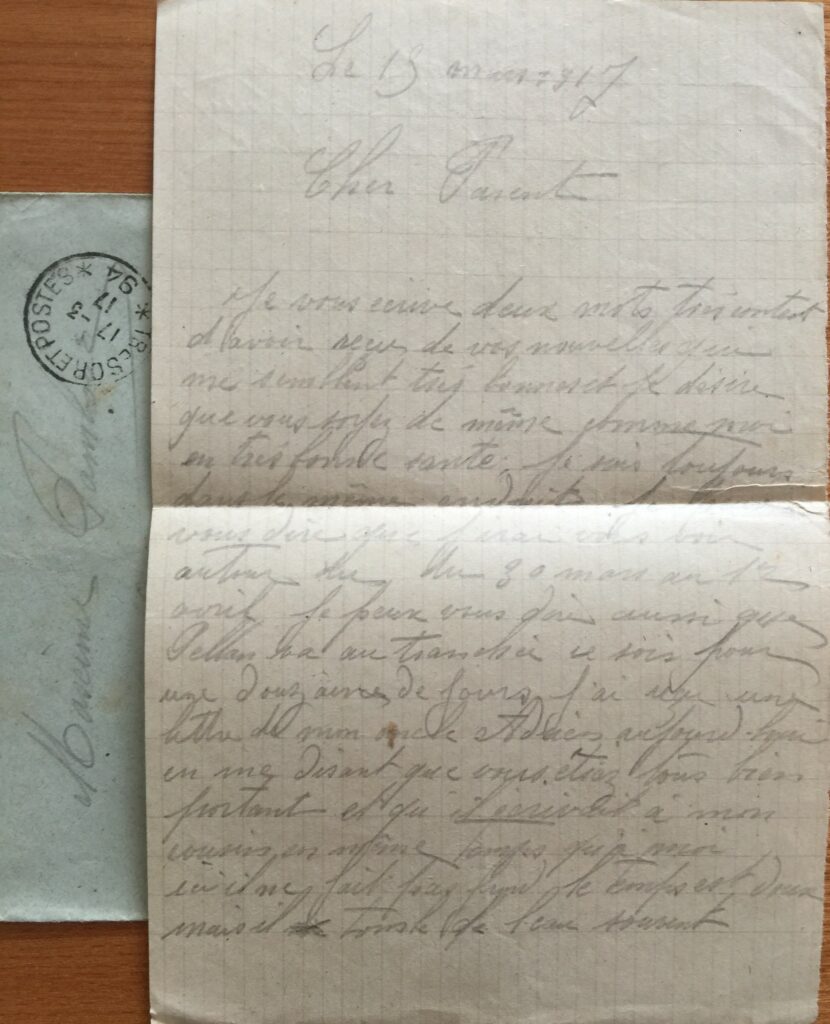 Le 15 mars 1917
Cher Parent
Je vous ecrive deux mots très content
d'avoir reçu de vos nouvelles qui
me semblent très bonnes et je désire
que vous soyez de même comme moi
en très bonne santé. Je suis toujours
dans le même endroit
vous dire que j'irai vous voir
autour du 30 mars au 12
avril Je peux vous dire aussi que
Pellan va au tranchée ce soir pour
une douzaine de jours j'ai une
lettre de mon oncle Adrien aujourd'hui
en me disant que vous étiez tous bien
portant et qu'il ecrivait à mon
cousin en même temps qu'à moi
ici il ne fait pas froid le temps est doux
mais il tombe de l'eau souvent
TRESOR ET POSTES * 94 *
17 - 3
17
Maxime